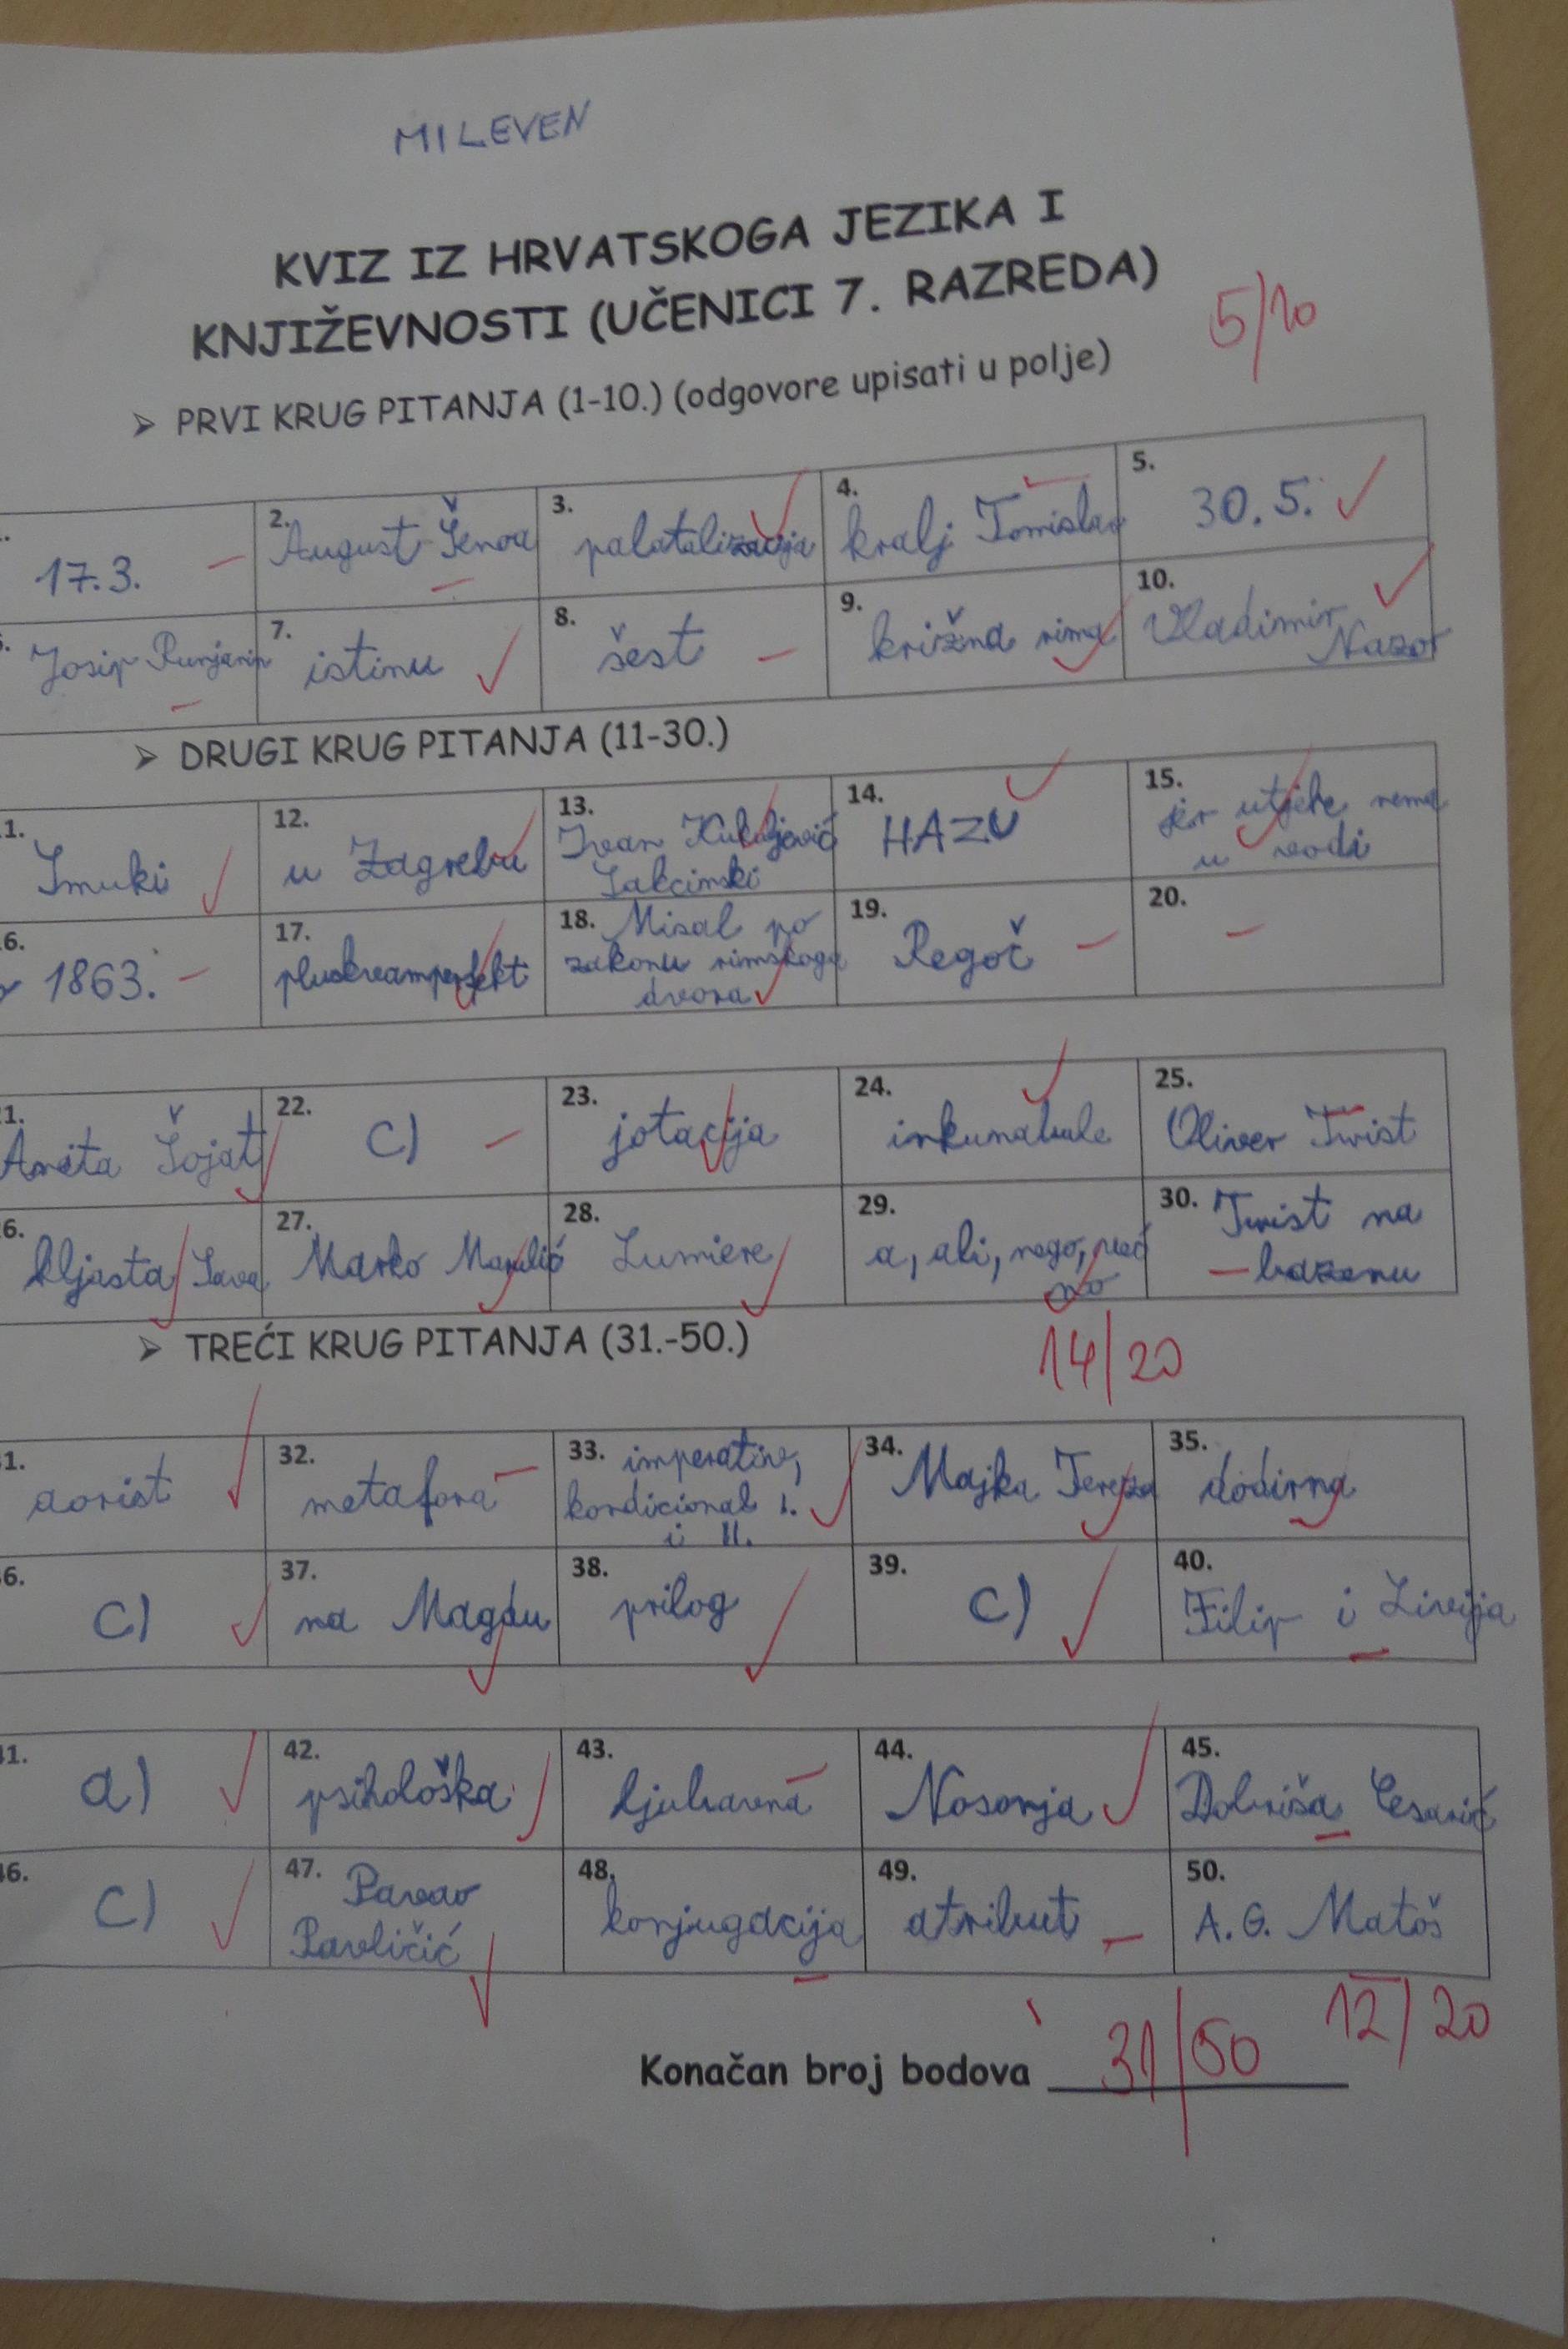 MILEVEN
KVIZ IZ HRVATSKOGA JEZIKA I
KNJIŽEVNOSTI (UČENICI 7. RAZREDA)
5/10
➢ PRVI KRUG PITANJA (1-10.) (odgovore upisati u polje)
. 17.3.
2. August Šenoa
3. palatalizacija
4. kralj Tomislav
5. 30.5.
. Josip Runjanin
7. istinu
8. šest
9. križna rima
10. Vladimir
Nazor
➢ DRUGI KRUG PITANJA (11-30.)
1. Imuki
12. u Zagrebu
13. Ivan Kukuljević
Sakcinski
14. HAZU
15. jer utjehe nema
u vodi
6. 1863.
17. pluskvamperfekt
18. Misal po
zakonu rimskoga
dvora
19. Regoč
20. –
1. Aneta Šojat
22. C)
23. jotacija
24. inkunabule
25. Oliver Twist
6. kljasta Sava
27. Marko Marulić
28. Lumiere
29. a, ali, nego, već
no
30. Twist na
bazenu
➢ TREĆI KRUG PITANJA (31.-50.)
14/20
1. aorist
32. metafora
33. imperativ,
kondicional I.
i II.
34. Majka Tereza
35. dodirna
6. C)
37. na Magdu
38. prilog
39. C)
40. Filip i Livija
1. a)
42. psihološka
43. ljubavna
44. Nosonja
45. Dobriša Cesarić
6. C)
47. Pavao
Pavličić
48. konjugacija
49. atribut
50. A. G. Matoš
12/20
Konačan broj bodova 31/50